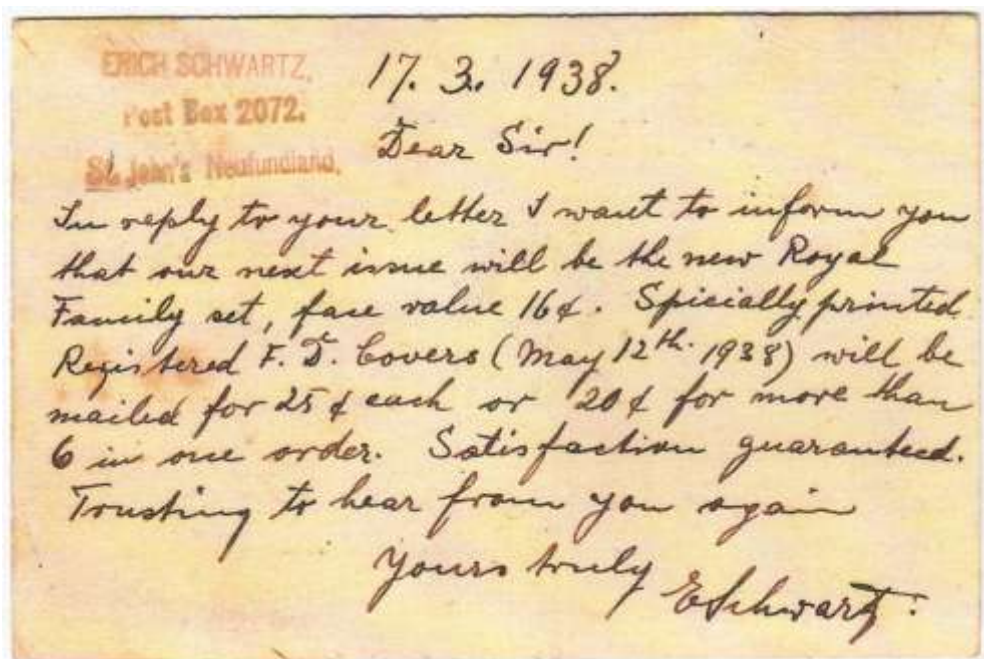 ERICH SCHWARTZ,
Post Box 2072.
St. John's Neufundland.
17. 3. 1938.
Dear Sir!
In reply to your letter I want to inform you
that our next issue will be the new Royal
Family set, face value 16¢. Spicially printed
Registered F. D. Covers (May 12th. 1938) will be
mailed for 25 ¢ each or 20 ¢ for more than
6 in one order. Satisfaction guaranteed.
Trusting to hear from you again
Yours truly
ESchwartz.